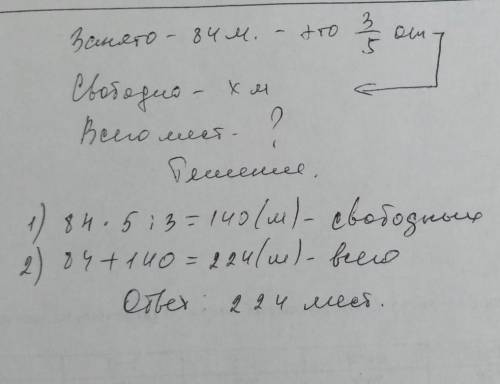 Занято - 84 м. - это 3/5 от
Свободно - х м
Всего мест - ?
Решение.
1) 84 · 5 : 3 = 140 (м) - свободных
2) 84 + 140 = 224 (м) - всего
Ответ: 224 мест.